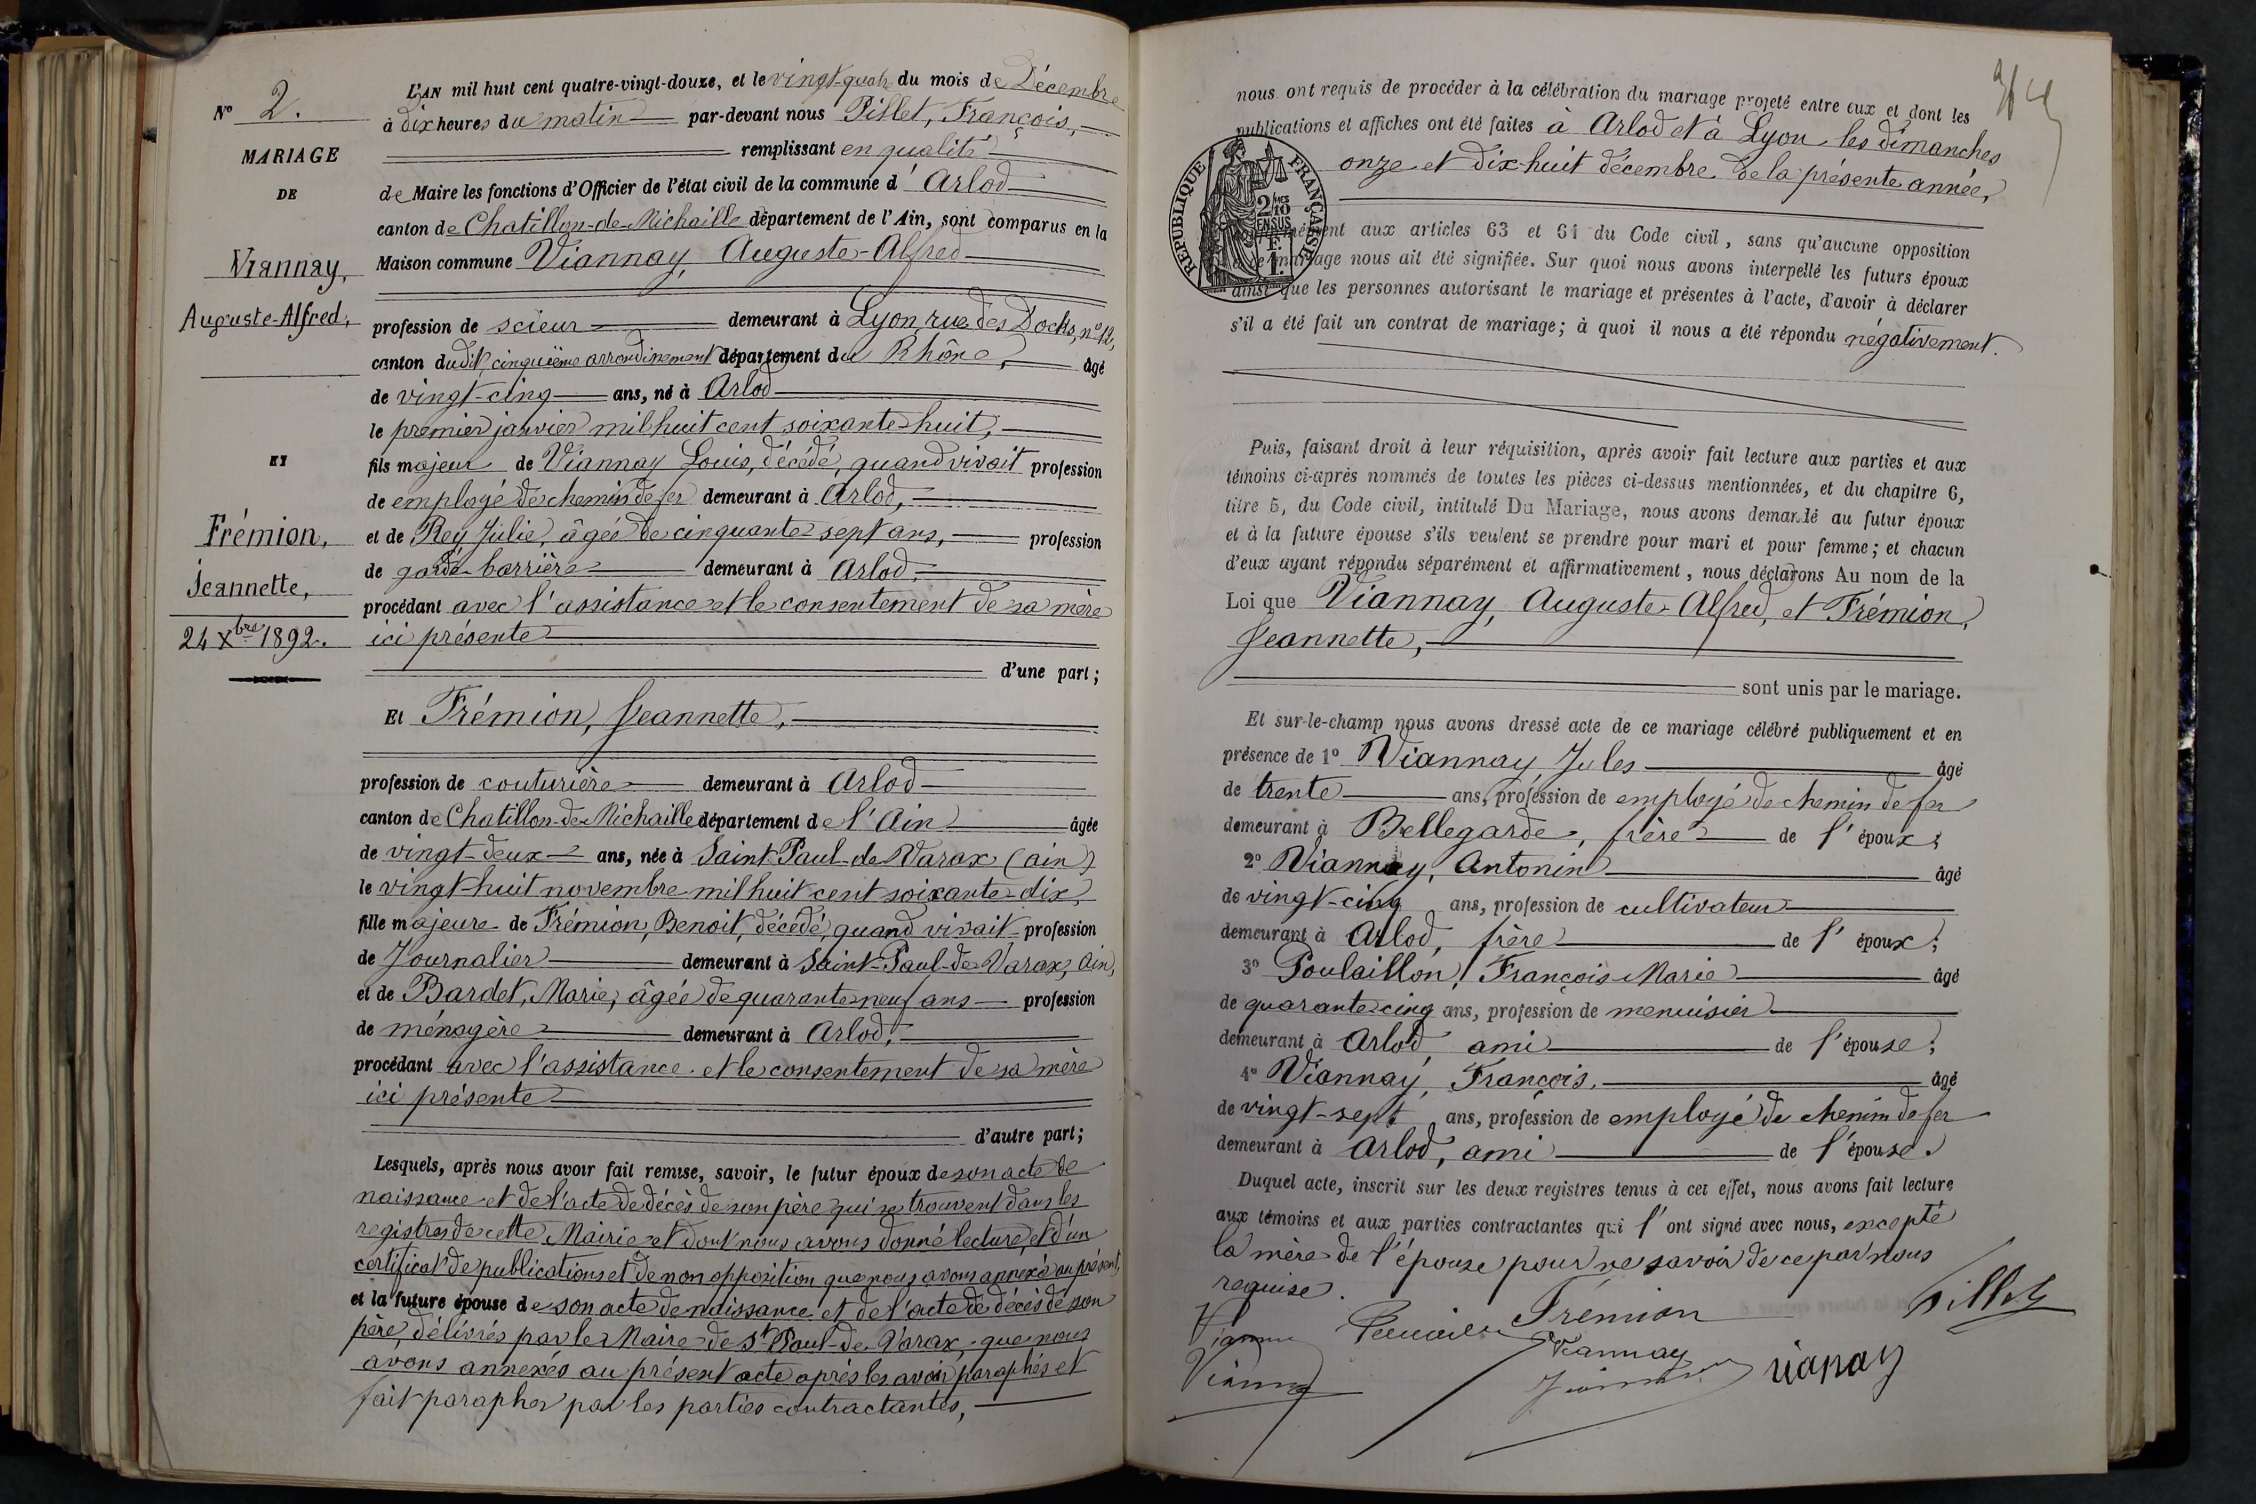 N° 2.
MARIAGE
DE
Viannay,
Auguste-Alfred,
ET
Frémion,
Jeannette,
24 Xbre 1892.
L'AN mil huit cent quatre-vingt-douze, et le vingt-quatre du mois de Décembre
à dix heures du matin par-devant nous Pillet, François,
remplissant en qualité
de Maire les fonctions d'Officier de l'état civil de la commune d'Arlod
canton de Chatillon-de-Michaille département de l'Ain, sont comparus en la
Maison commune Viannay, Auguste-Alfred
profession de scieur demeurant à Lyon, rue des Docks, n° 12,
canton dudit cinquième arrondissement département du Rhône, âgé
de vingt-cinq ans, né à Arlod
le premier janvier mil huit cent soixante-huit,
fils majeur de Viannay Louis, décédé, quand vivait profession
de employé de chemin de fer demeurant à Arlod,
et de Rey Julie, âgée de cinquante-sept ans, profession
de garde-barrière demeurant à Arlod,
procédant avec l'assistance et le consentement de sa mère
ici présente
d'une part;
Et Frémion, Jeannette,
profession de couturière demeurant à Arlod
canton de Chatillon-de-Michaille département de l'Ain âgée
de vingt-deux ans, née à Saint-Paul-de-Varax (ain)
le vingt-huit novembre mil huit cent soixante-dix,
fille majeure de Frémion, Benoit, décédé, quand vivait profession
de Journalier demeurant à Saint-Paul-de-Varax, Ain,
et de Bardet, Marie, âgée de quarante-neuf ans profession
de ménagère demeurant à Arlod,
procédant avec l'assistance et le consentement de sa mère
ici présente
d'autre part;
Lesquels, après nous avoir fait remise, savoir, le futur époux de son acte de
naissance et de l'acte de décès de son père qui se trouvent dans les
registres de cette Mairie et dont nous avons donné lecture, et d'un
certificat de publications et de non opposition que nous avons annexé au présent,
et la future épouse de son acte de naissance et de l'acte de décès de son
père, délivrés par le Maire de St Paul-de-Varax, que nous
avons annexés au présent acte après les avoir paraphés et
fait parapher par les parties contractantes,
nous ont requis de procéder à la célébration du mariage projeté entre eux et dont les
publications et affiches ont été faites à Arlod et à Lyon les dimanches
onze et dix-huit décembre de la présente année,
RÉPUBLIQUE FRANÇAISE
2/10 EN SUS
1 F.
aux articles 63 et 64 du Code civil, sans qu'aucune opposition
à ce mariage nous ait été signifiée. Sur quoi nous avons interpellé les futurs époux
ainsi que les personnes autorisant le mariage et présentes à l'acte, d'avoir à déclarer
s'il a été fait un contrat de mariage; à quoi il nous a été répondu négativement.
Puis, faisant droit à leur réquisition, après avoir fait lecture aux parties et aux
témoins ci-après nommés de toutes les pièces ci-dessus mentionnées, et du chapitre 6,
titre 5, du Code civil, intitulé Du Mariage, nous avons demandé au futur époux
et à la future épouse s'ils veulent se prendre pour mari et pour femme; et chacun
d'eux ayant répondu séparément et affirmativement, nous déclarons Au nom de la
Loi que Viannay, Auguste-Alfred, et Frémion,
Jeannette,
sont unis par le mariage.
Et sur-le-champ nous avons dressé acte de ce mariage célébré publiquement et en
présence de 1° Viannay Jules âgé
de trente ans, profession de employé de chemin de fer
demeurant à Bellegarde, frère de l'époux;
2° Viannay, Antonin âgé
de vingt-cinq ans, profession de cultivateur
demeurant à Arlod, frère de l'époux;
3° Poulaillon, François-Marie âgé
de quarante-cinq ans, profession de menuisier
demeurant à Arlod, ami de l'épouse;
4° Viannay, François, âgé
de vingt-sept ans, profession de employé de chemin de fer
demeurant à Arlod, ami de l'épouse.
Duquel acte, inscrit sur les deux registres tenus à cet effet, nous avons fait lecture
aux témoins et aux parties contractantes qui l'ont signé avec nous, excepté
la mère de l'épouse pour ne savoir de ce par nous
requise.
Frémion
Pillet
Viannay
vianay